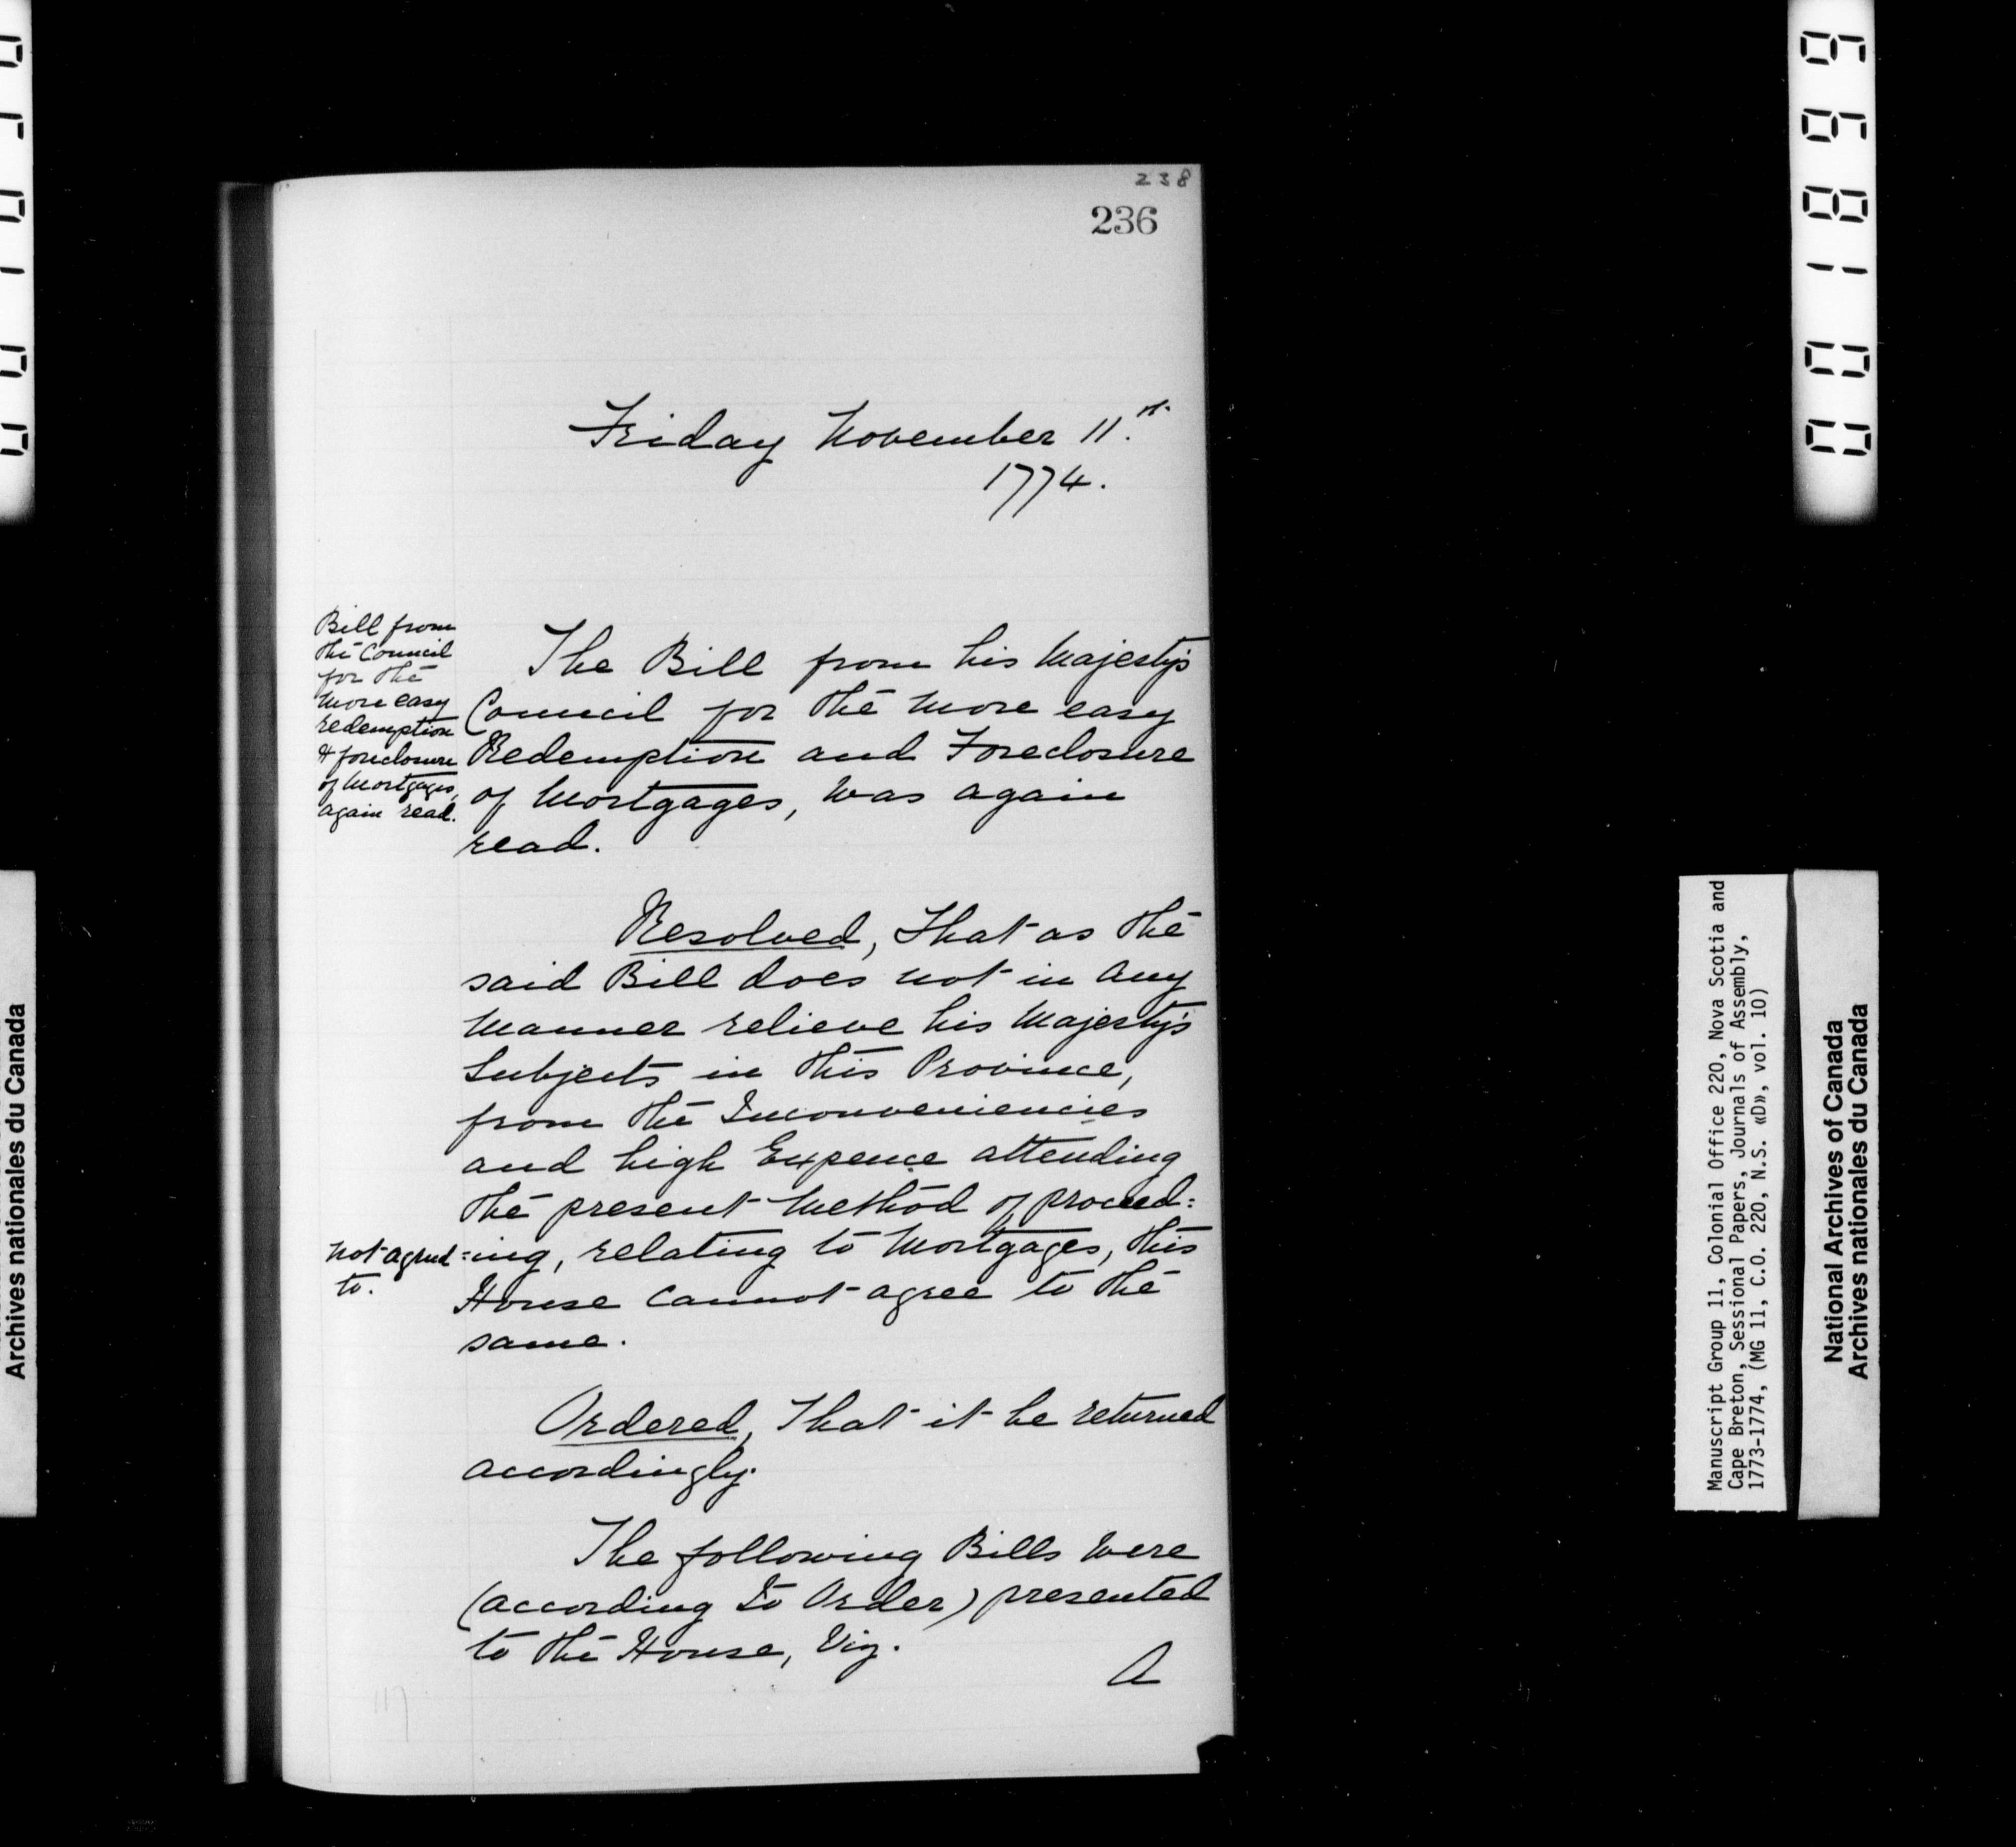 238
236
Friday November 11.th
1774.
Bill from
the Council
for the
more easy
redemption
& foreclosure
of Mortgages,
again read.
The Bill from his Majesty's
Council for the more easy
Redemption and Foreclosure
of Mortgages, was again
read.
Resolved, That as the
said Bill does not in any
Manner relieve his Majesty's
Subjects in this Province,
from the Inconveniencies
and high Expence attending
the present Method of proceed=
=ing, relating to Mortgages, this
House cannot agree to the
same.
not agreed
to.
Ordered, That it be returned
accordingly.
The following Bills were
(according to Order) presented
to the House, Viz.
A
117
Archives nationales du Canada
Manuscript Group 11, Colonial Office 220, Nova Scotia and
Cape Breton, Sessional Papers, Journals of Assembly,
1773-1774, (MG 11, C.O. 220, N.S. «D», vol. 10)
National Archives of Canada
Archives nationales du Canada